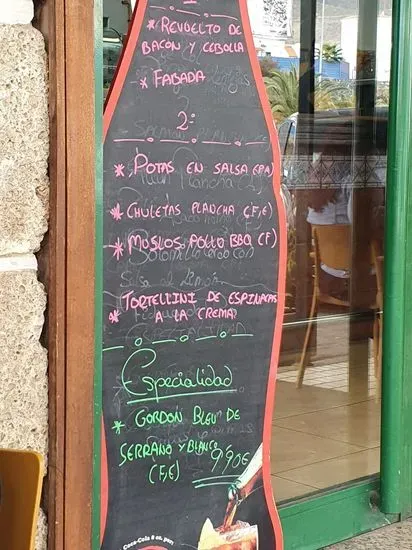 * REVUELTO DE
BACON Y CEBOLLA
* FABADA
2º
* POTAS EN SALSA (PA)
* CHULETAS PLANCHA (F,E)
* MUSLOS POLLO BBQ (F)
TORTELLINI DE ESPINACAS
* A LA CREMA
Especialidad
* GORDON BLEU DE
SERRANO Y BLANCO
(F,E) 9,90€
Coca-Cola & co, por: